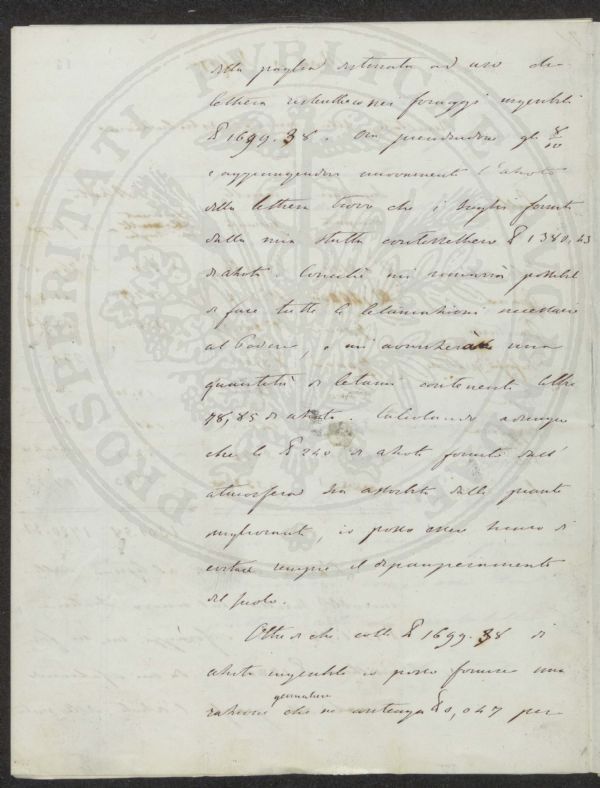 della paglia destinata ad uso di
lettiera resteranno nei foraggi ingeribili
£ 1699.38. Ora prendendone gli 8/10
e aggiungendovi nuovamente l'azoto
della lettiera trovo che i
dalla mia stalla conterrebbero £ 1380,43
di azoto. Cosicché mi rimarrà possibile
di fare tutte le letamazioni necessarie
al Podere, e mi avanzerà una
quantità di letami contenenti altre
78,85 di azoto. Calcolando adunque
che le £ 240 di azoto fornite dall'
atmosfera sia assorbito dalle piante
miglioranti, io posso esser sicuro di
evitare sempre il depauperamento
del suolo.
Oltre di che colle £ 1699.38 di
azoto ingeribile io posso fornire una
giornaliera
razione che ne contenga £ 0,047 per
PROSPERITATI PUBLICAE